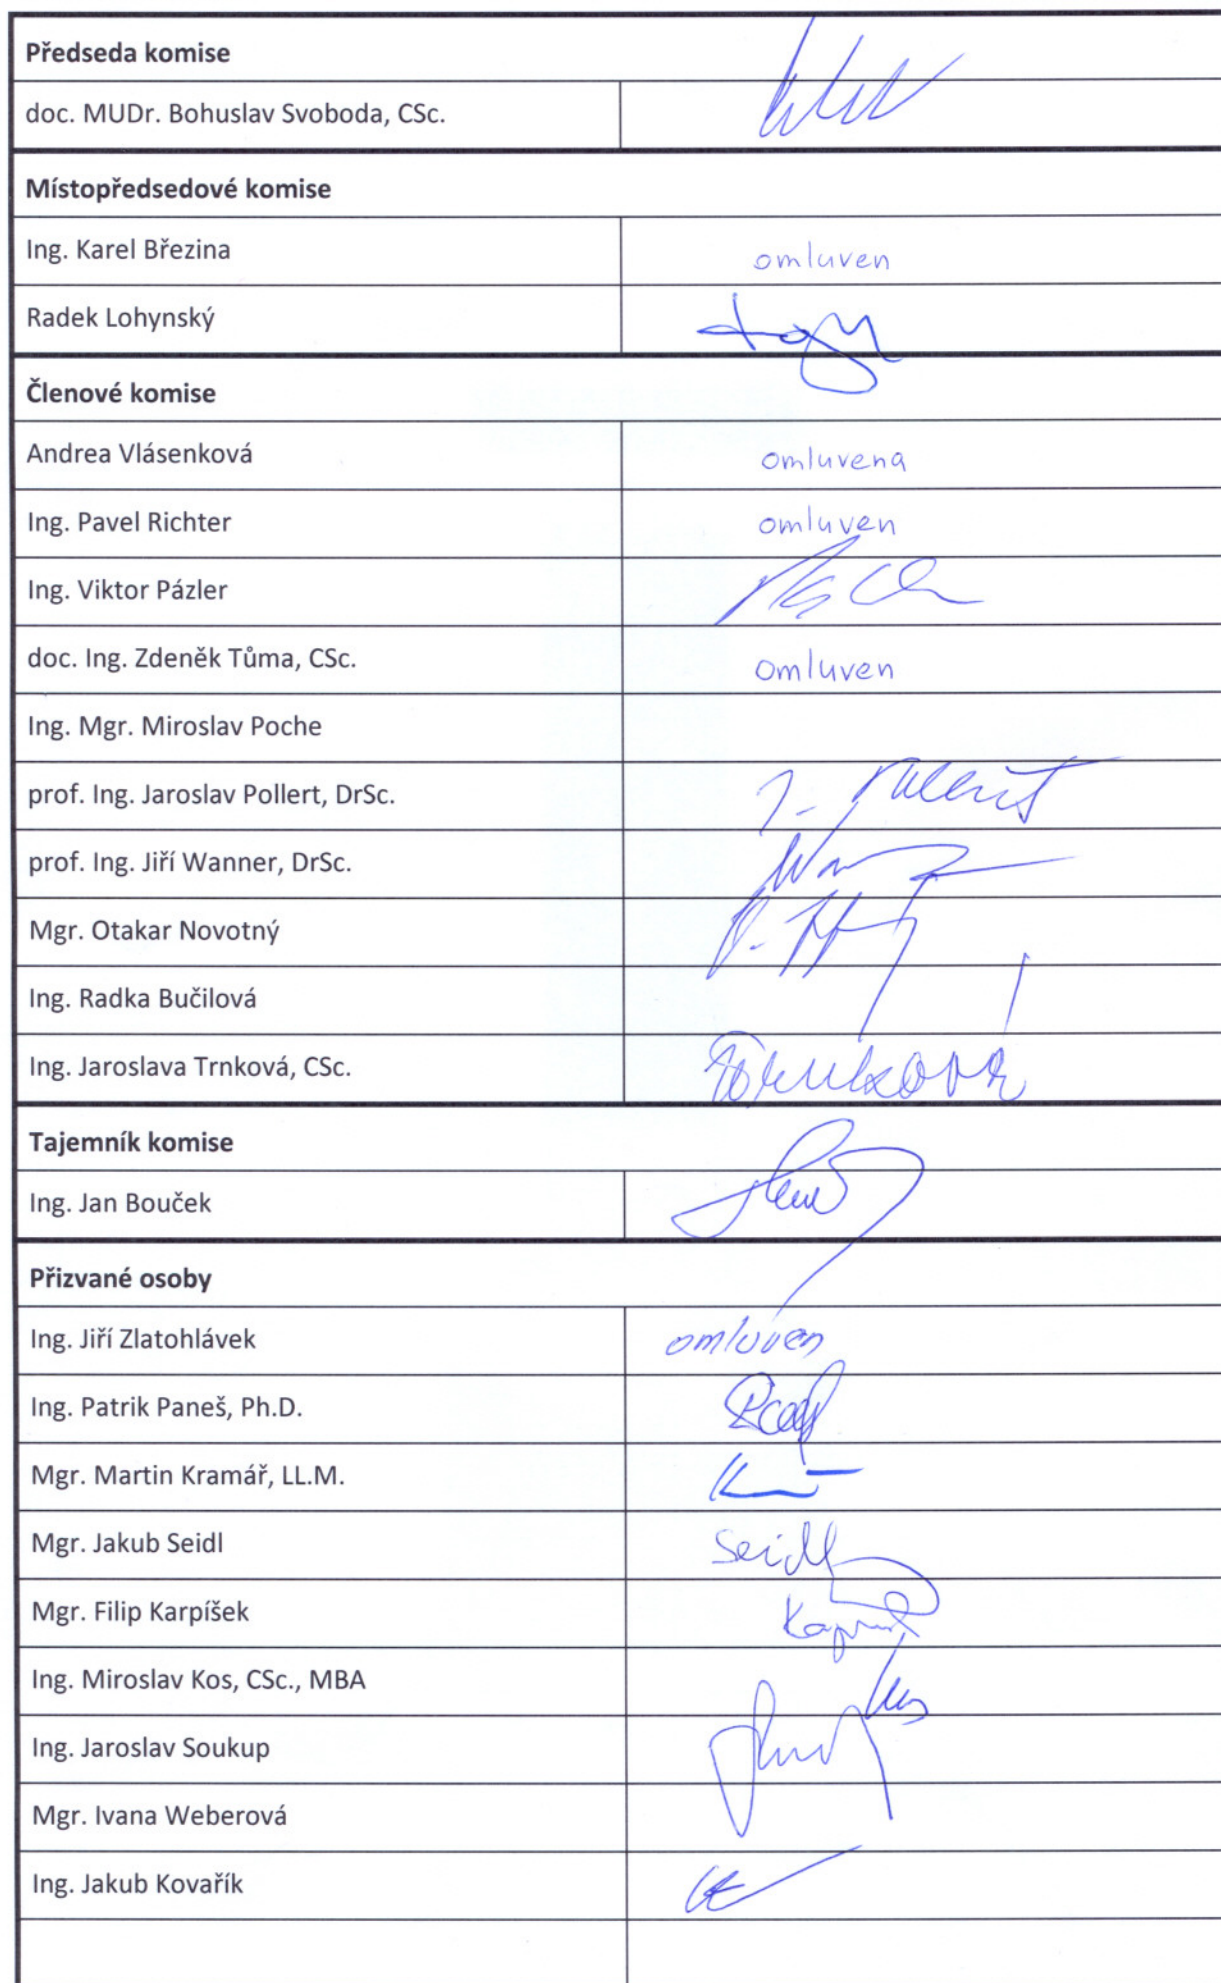 Předseda komise
doc. MUDr. Bohuslav Svoboda, CSc.
Místopředsedové komise
Ing. Karel Březina omluven
Radek Lohynský
Členové komise
Andrea Vlásenková omluvena
Ing. Pavel Richter omluven
Ing. Viktor Pázler
doc. Ing. Zdeněk Tůma, CSc. omluven
Ing. Mgr. Miroslav Poche
prof. Ing. Jaroslav Pollert, DrSc.
prof. Ing. Jiří Wanner, DrSc.
Mgr. Otakar Novotný
Ing. Radka Bučilová
Ing. Jaroslava Trnková, CSc.
Tajemník komise
Ing. Jan Bouček
Přizvané osoby
Ing. Jiří Zlatohlávek omluven
Ing. Patrik Paneš, Ph.D.
Mgr. Martin Kramář, LL.M.
Mgr. Jakub Seidl Seidl
Mgr. Filip Karpíšek
Ing. Miroslav Kos, CSc., MBA
Ing. Jaroslav Soukup
Mgr. Ivana Weberová
Ing. Jakub Kovařík